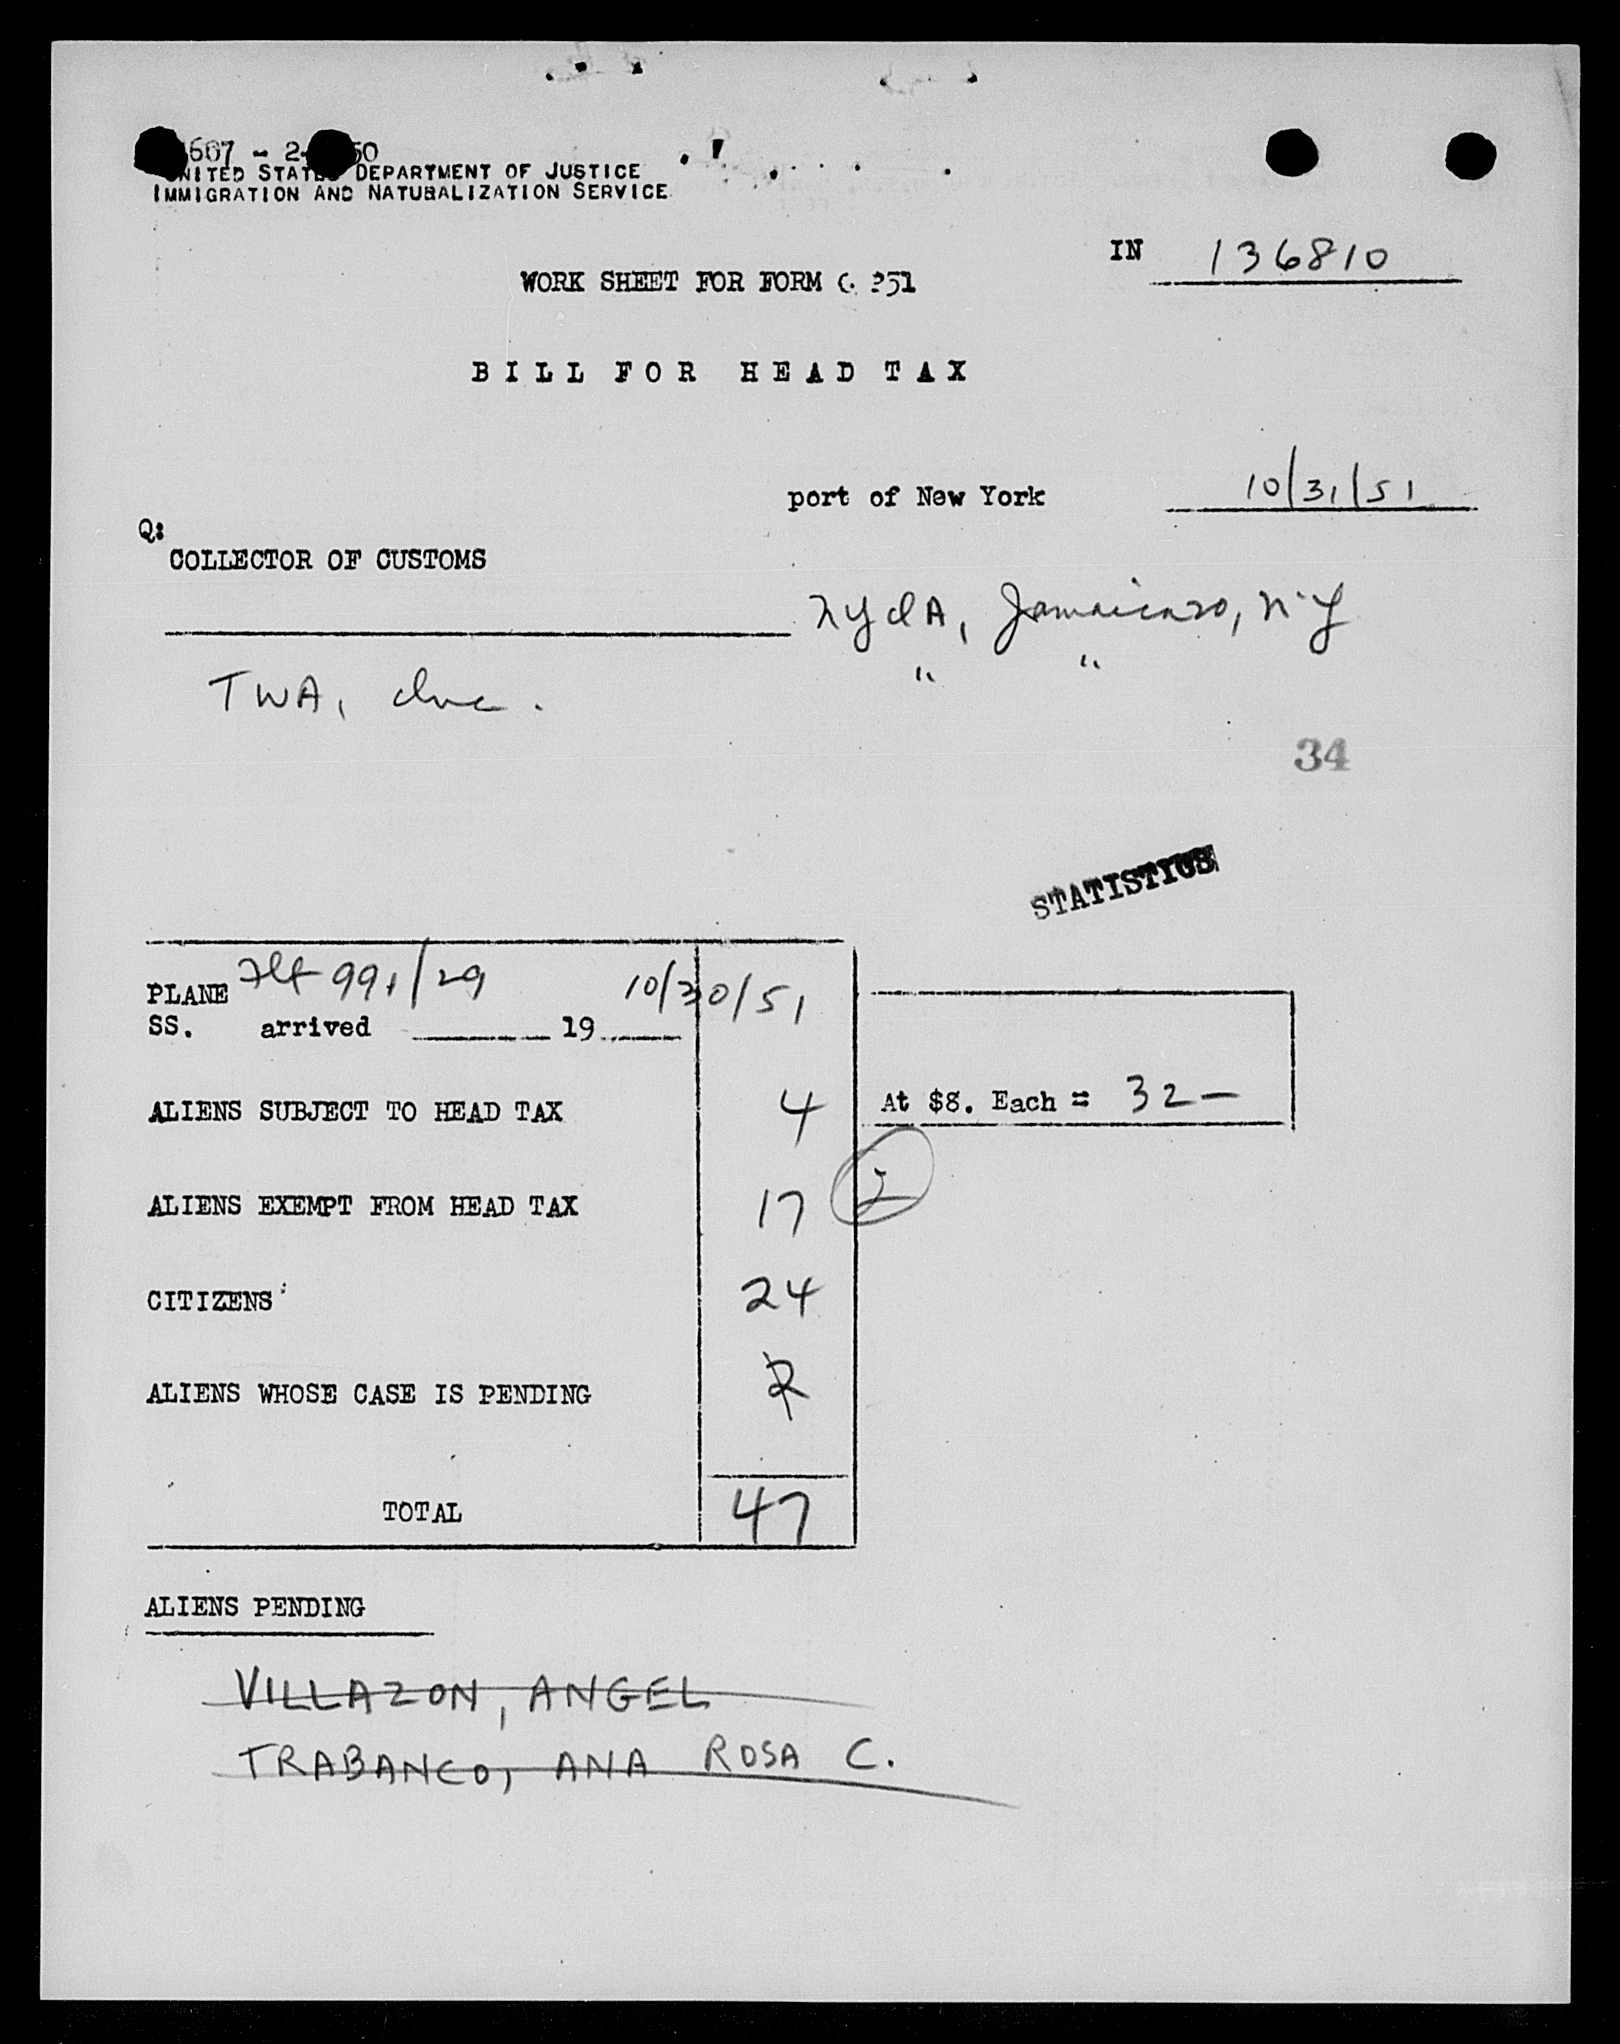 607 - 2- 50
UNITED STATES DEPARTMENT OF JUSTICE
IMMIGRATION AND NATURALIZATION SERVICE
IN 136810
WORK SHEET FOR FORM 351
BILL FOR HEAD TAX
port of New York 10/31/51
Q:
COLLECTOR OF CUSTOMS
Jamaica 20, NY
" "
TWA, Inc.
34
STATISTICS
PLANE Flt 991/29 10/30/51
SS. arrived 19
ALIENS SUBJECT TO HEAD TAX 4 At $8. Each = 32-
ALIENS EXEMPT FROM HEAD TAX 17 2
CITIZENS 24
ALIENS WHOSE CASE IS PENDING 2
TOTAL 47
ALIENS PENDING
VILLAZON, ANGEL
TRABANCO, ANA ROSA C.